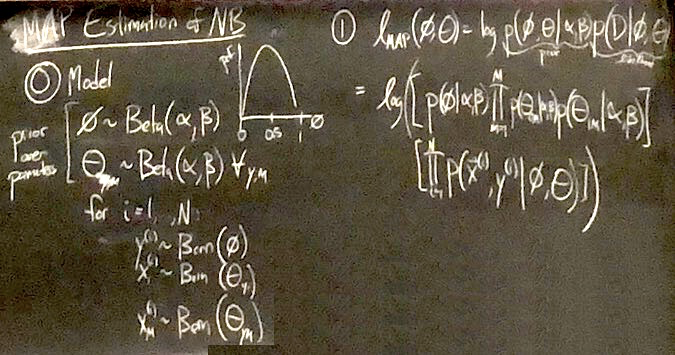 MAP Estimation of NB
⓪ Model
pdf
0 0.5 1 ϕ
prior over params
ϕ ~ Beta(α, β)
θ_{y,m} ~ Beta(α, β) ∀ y,m
for i=1,..,N:
y^{(i)} ~ Bern(ϕ)
x^{(i)} ~ Bern(θ_{y,1})
x_M^{(i)} ~ Bern(θ_{y,M})
① ℓ_{MAP}(ϕ,θ) = log p(ϕ,θ|α,β) p(D|ϕ,θ)
prior
= log([p(ϕ|α,β) ∏_{m=1}^{M} p(θ_{0,m}|α,β) p(θ_{1,m}|α,β)]
[∏_{i=1}^{N} p(x^{(i)}, y^{(i)}|ϕ,θ)])